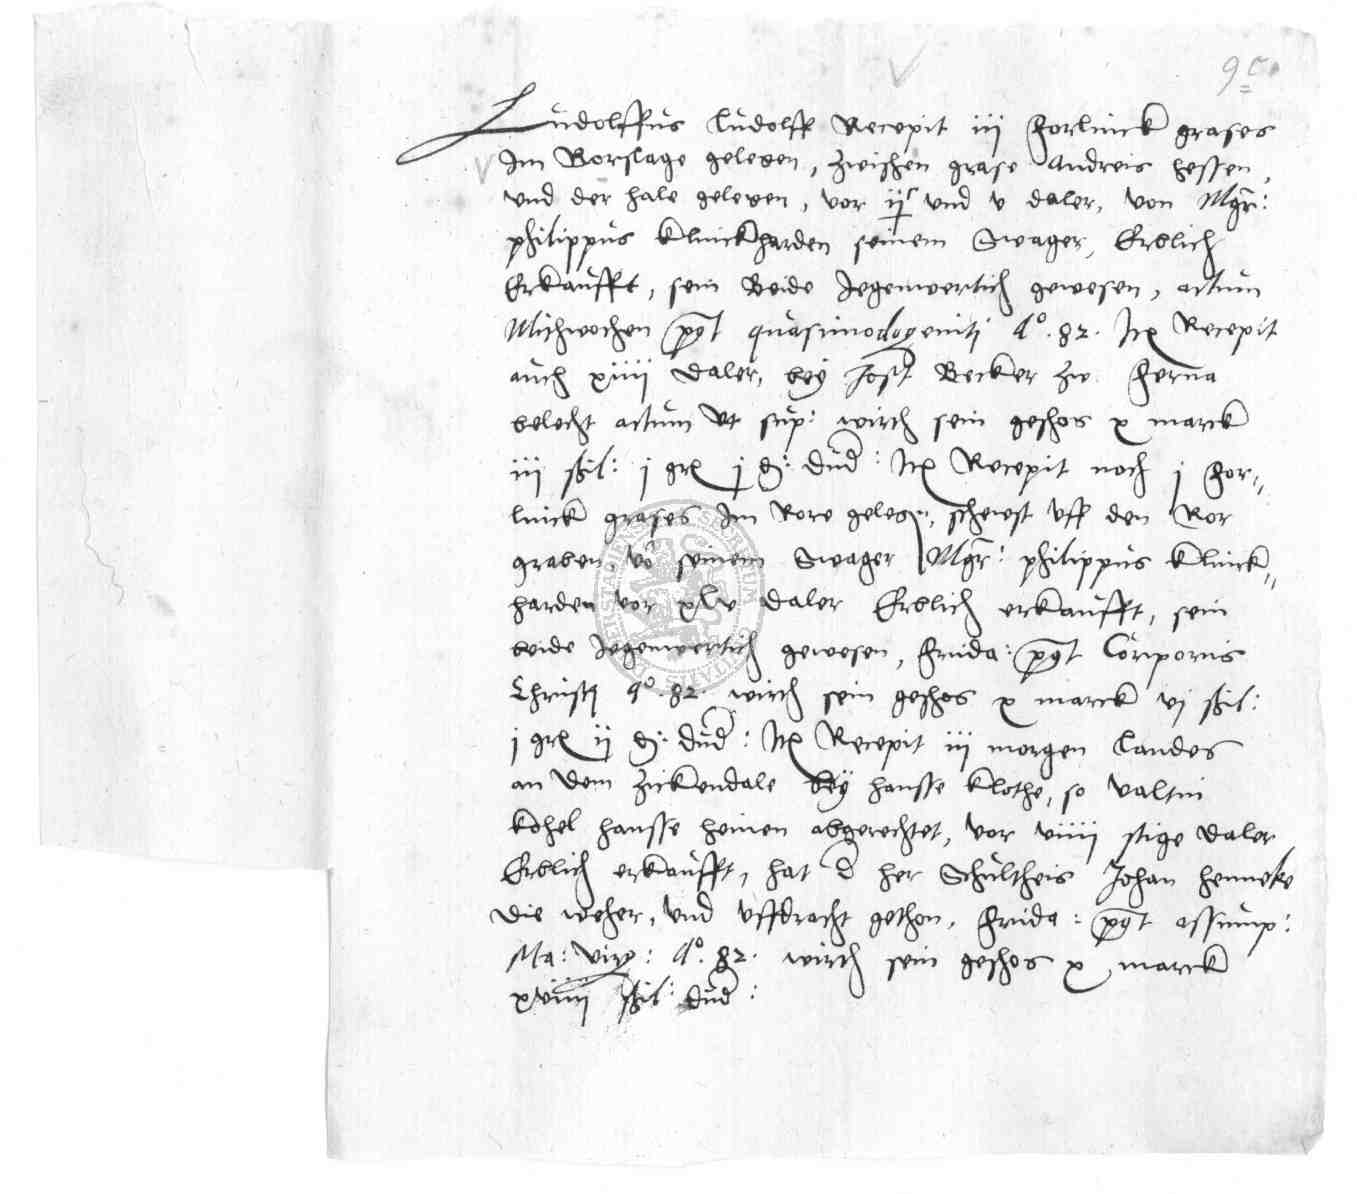 9c
Ludolffus Ludolff Recepit iij Forlinck grases
Im Borslage gelegen, zwischen grase Andreis Hessen,
vnd der hale gelegen, vor ijc vnd v daler, von Mgr:
philippus Klinckharden seinem Swager, Erblich
Erkaufft, sein Beide Jegenwertich gewesen, actum
Mithwochen post quasimodogeniti Ao. 82. Itē Recepit
auch xiiij daler, bey Jost Becker zw. Herna
belecht actum vt sup: wirth sein geschos x marck
iij schil: j grē j d: dīd: Itē Recepit noch j For-
linck grases Im Rore gelegen, scheust vff den Ror
graben, vō seinem Swager Mgr: philippus Klinck-
harden vor xlv daler Erblich erkaufft, sein
beide Jegenwertich gewesen, Frida: post Corporis
Christi Ao. 82. wirth sein geschos x marck vj schil:
j grē ij d: dīd: Itē Recepit iij morgen Landes
an dem Zickendale bey Hansse Klothe, so Valtin
Kohel Hansse Heinen abgerechtet, vor viiij stige daler
Erblich erkaufft, hat d her Schultheis Johan Henneke
die weher, vnd vffdracht gethon, Frida: post assump:
Ma: Virg: Ao. 82. wirth sein geschos x marck
xviiij schil: dīd: